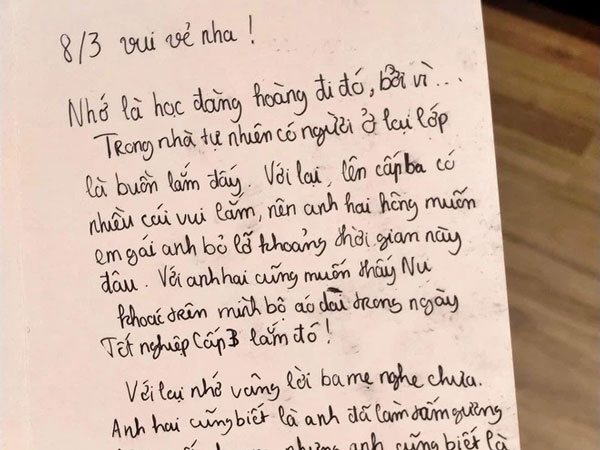 8/3 vui vẻ nha !
Nhớ là học đàng hoàng đi đó, bởi vì...
Trong nhà tự nhiên có người ở lại lớp
là buồn lắm đấy. Với lại, lên cấp ba có
nhiều cái vui lắm, nên anh hai hông muốn
em gái anh bỏ lỡ khoảng thời gian này
đâu. Với anh hai cũng muốn thấy Nu
khoác trên mình bộ áo dài trong ngày
Tốt nghiệp Cấp 3 lắm đó !
Với lại nhớ vâng lời ba mẹ nghe chưa.
Anh hai cũng biết là anh đã làm tấm gương
nhưng anh cũng biết là